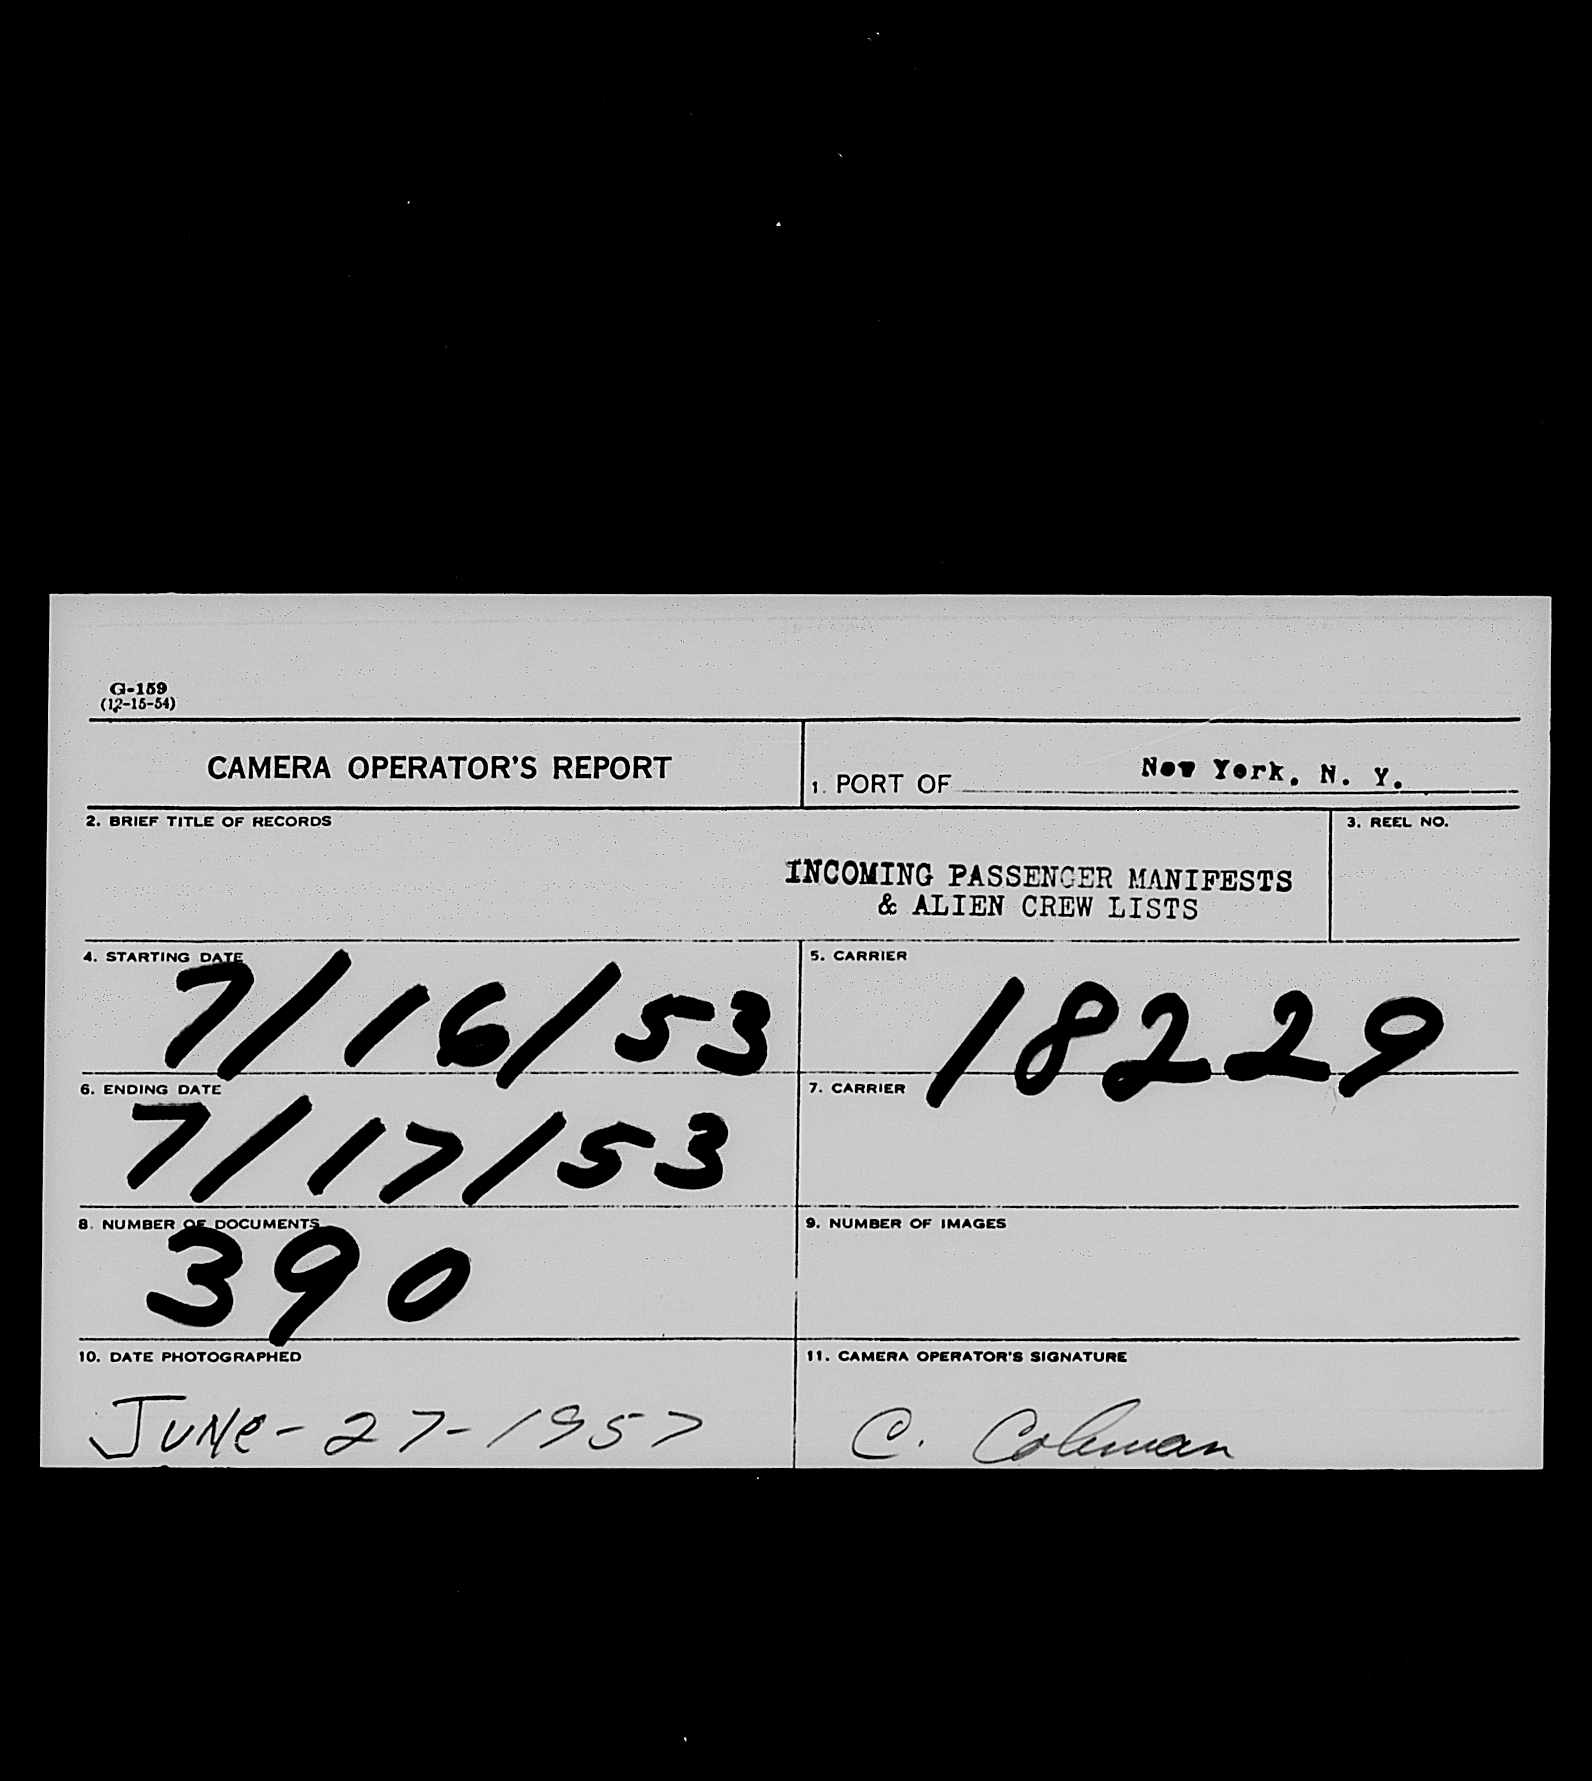 G-159
(12-15-54)
CAMERA OPERATOR'S REPORT
1. PORT OF New York, N. Y.
2. BRIEF TITLE OF RECORDS
3. REEL NO.
INCOMING PASSENGER MANIFESTS
& ALIEN CREW LISTS
4. STARTING DATE
7/16/53
5. CARRIER
18229
6. ENDING DATE
7/17/53
7. CARRIER
8. NUMBER OF DOCUMENTS
390
9. NUMBER OF IMAGES
10. DATE PHOTOGRAPHED
JUNE-27-1957
11. CAMERA OPERATOR'S SIGNATURE
C. Coleman